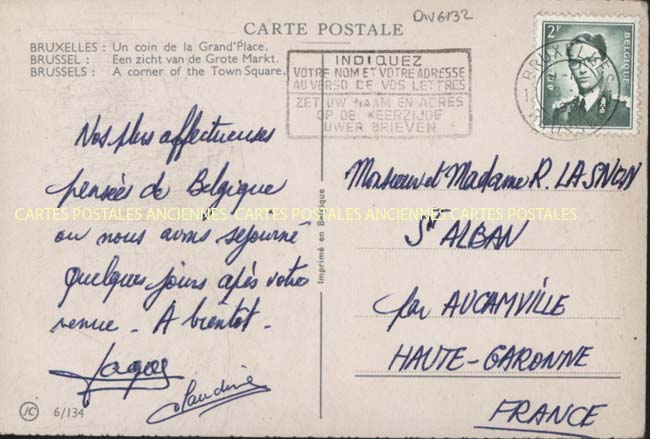 DIV6132
CARTE POSTALE
BRUXELLES : Un coin de la Grand'Place.
BRUSSEL : Een zicht van de Grote Markt.
BRUSSELS : A corner of the Town Square.
INDIQUEZ
VOTRE NOM ET VOTRE ADRESSE
AU VERSO DE VOS LETTRES
ZET UW NAAM EN ADRES
OP DE KEERZIJDE
UWER BRIEVEN
2F
BELGIQUE
BRUXELLES
BRUSSEL
Nos plus affectueuses
pensées de Belgique
où nous avons séjourné
quelques jours après votre
venue. A bientôt.
Claudine
Imprimé en Belgique
Monsieur et Madame R. LASNON
St ALBAN
par AUCAMVILLE
HAUTE-GARONNE
FRANCE
CARTES POSTALES ANCIENNES CARTES POSTALES ANCIENNES CARTES POSTALES
JC 6/134